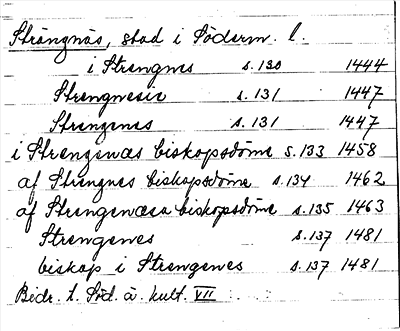 Strängnäs, stad i Söderm. l.
i Strengnes s. 130 1444
Strengnesie s. 131 1447
Strengenes s. 131 1447
i Strengenæs biskopsdöme s. 133 1458
af Strengnes biskopsdöme s. 134 1462
af Strengenæsa biskopsdöme s. 135 1463
Strengenes s. 137 1481
biskop i Strengenes s. 137 1481
Bidr. t. Söd. ä. kult. VII